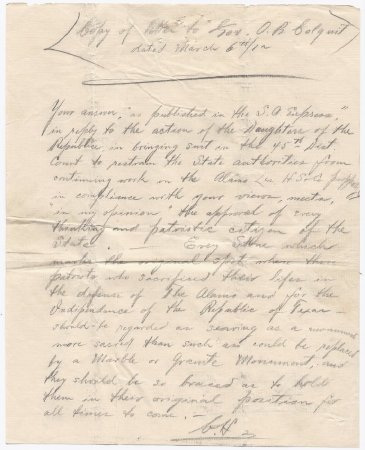 Copy of letter to Gov. O. B Colquit
dated March 6th/12
Your answer, "as published in the S. A Express"
in reply to the action of the Daughters of the
Republic, in bringing suit in the 45th Dist.
Court to restrain the State authorities from
continuing work on the Alamo
in compliance with your views, meets,
in my opinion "the approval of every
thinking and patriotic citizen of the
State. — Evey Stone which
marks the original spot, where those
patriots who sacrificed their lives in
the defense of The Alamo and for the
Independence of the Republic of Texas —
should be regarded as serving as a monument
more sacred than such as could be replaced
by a Marble or Granite Monument, and
they should be so braced as to hold
them in their original position for
all times to come. —